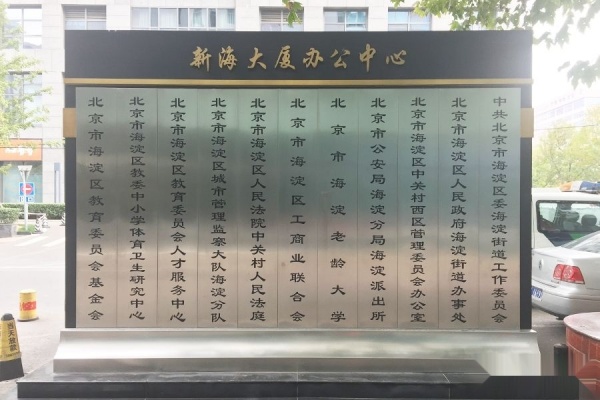 新海大厦办公中心
中共北京市海淀区委海淀街道工作委员会
北京市海淀区人民政府海淀街道办事处
北京市海淀区中关村西区管理委员会办公室
北京市公安局海淀分局海淀派出所
北京市海淀老龄大学
北京市海淀区工商业联合会
北京市海淀区人民法院中关村人民法庭
北京市海淀区城市管理监察大队海淀分队
北京市海淀区教育委员会人才服务中心
北京市海淀区教委中小学体育卫生研究中心
北京市海淀区教育委员会基金会